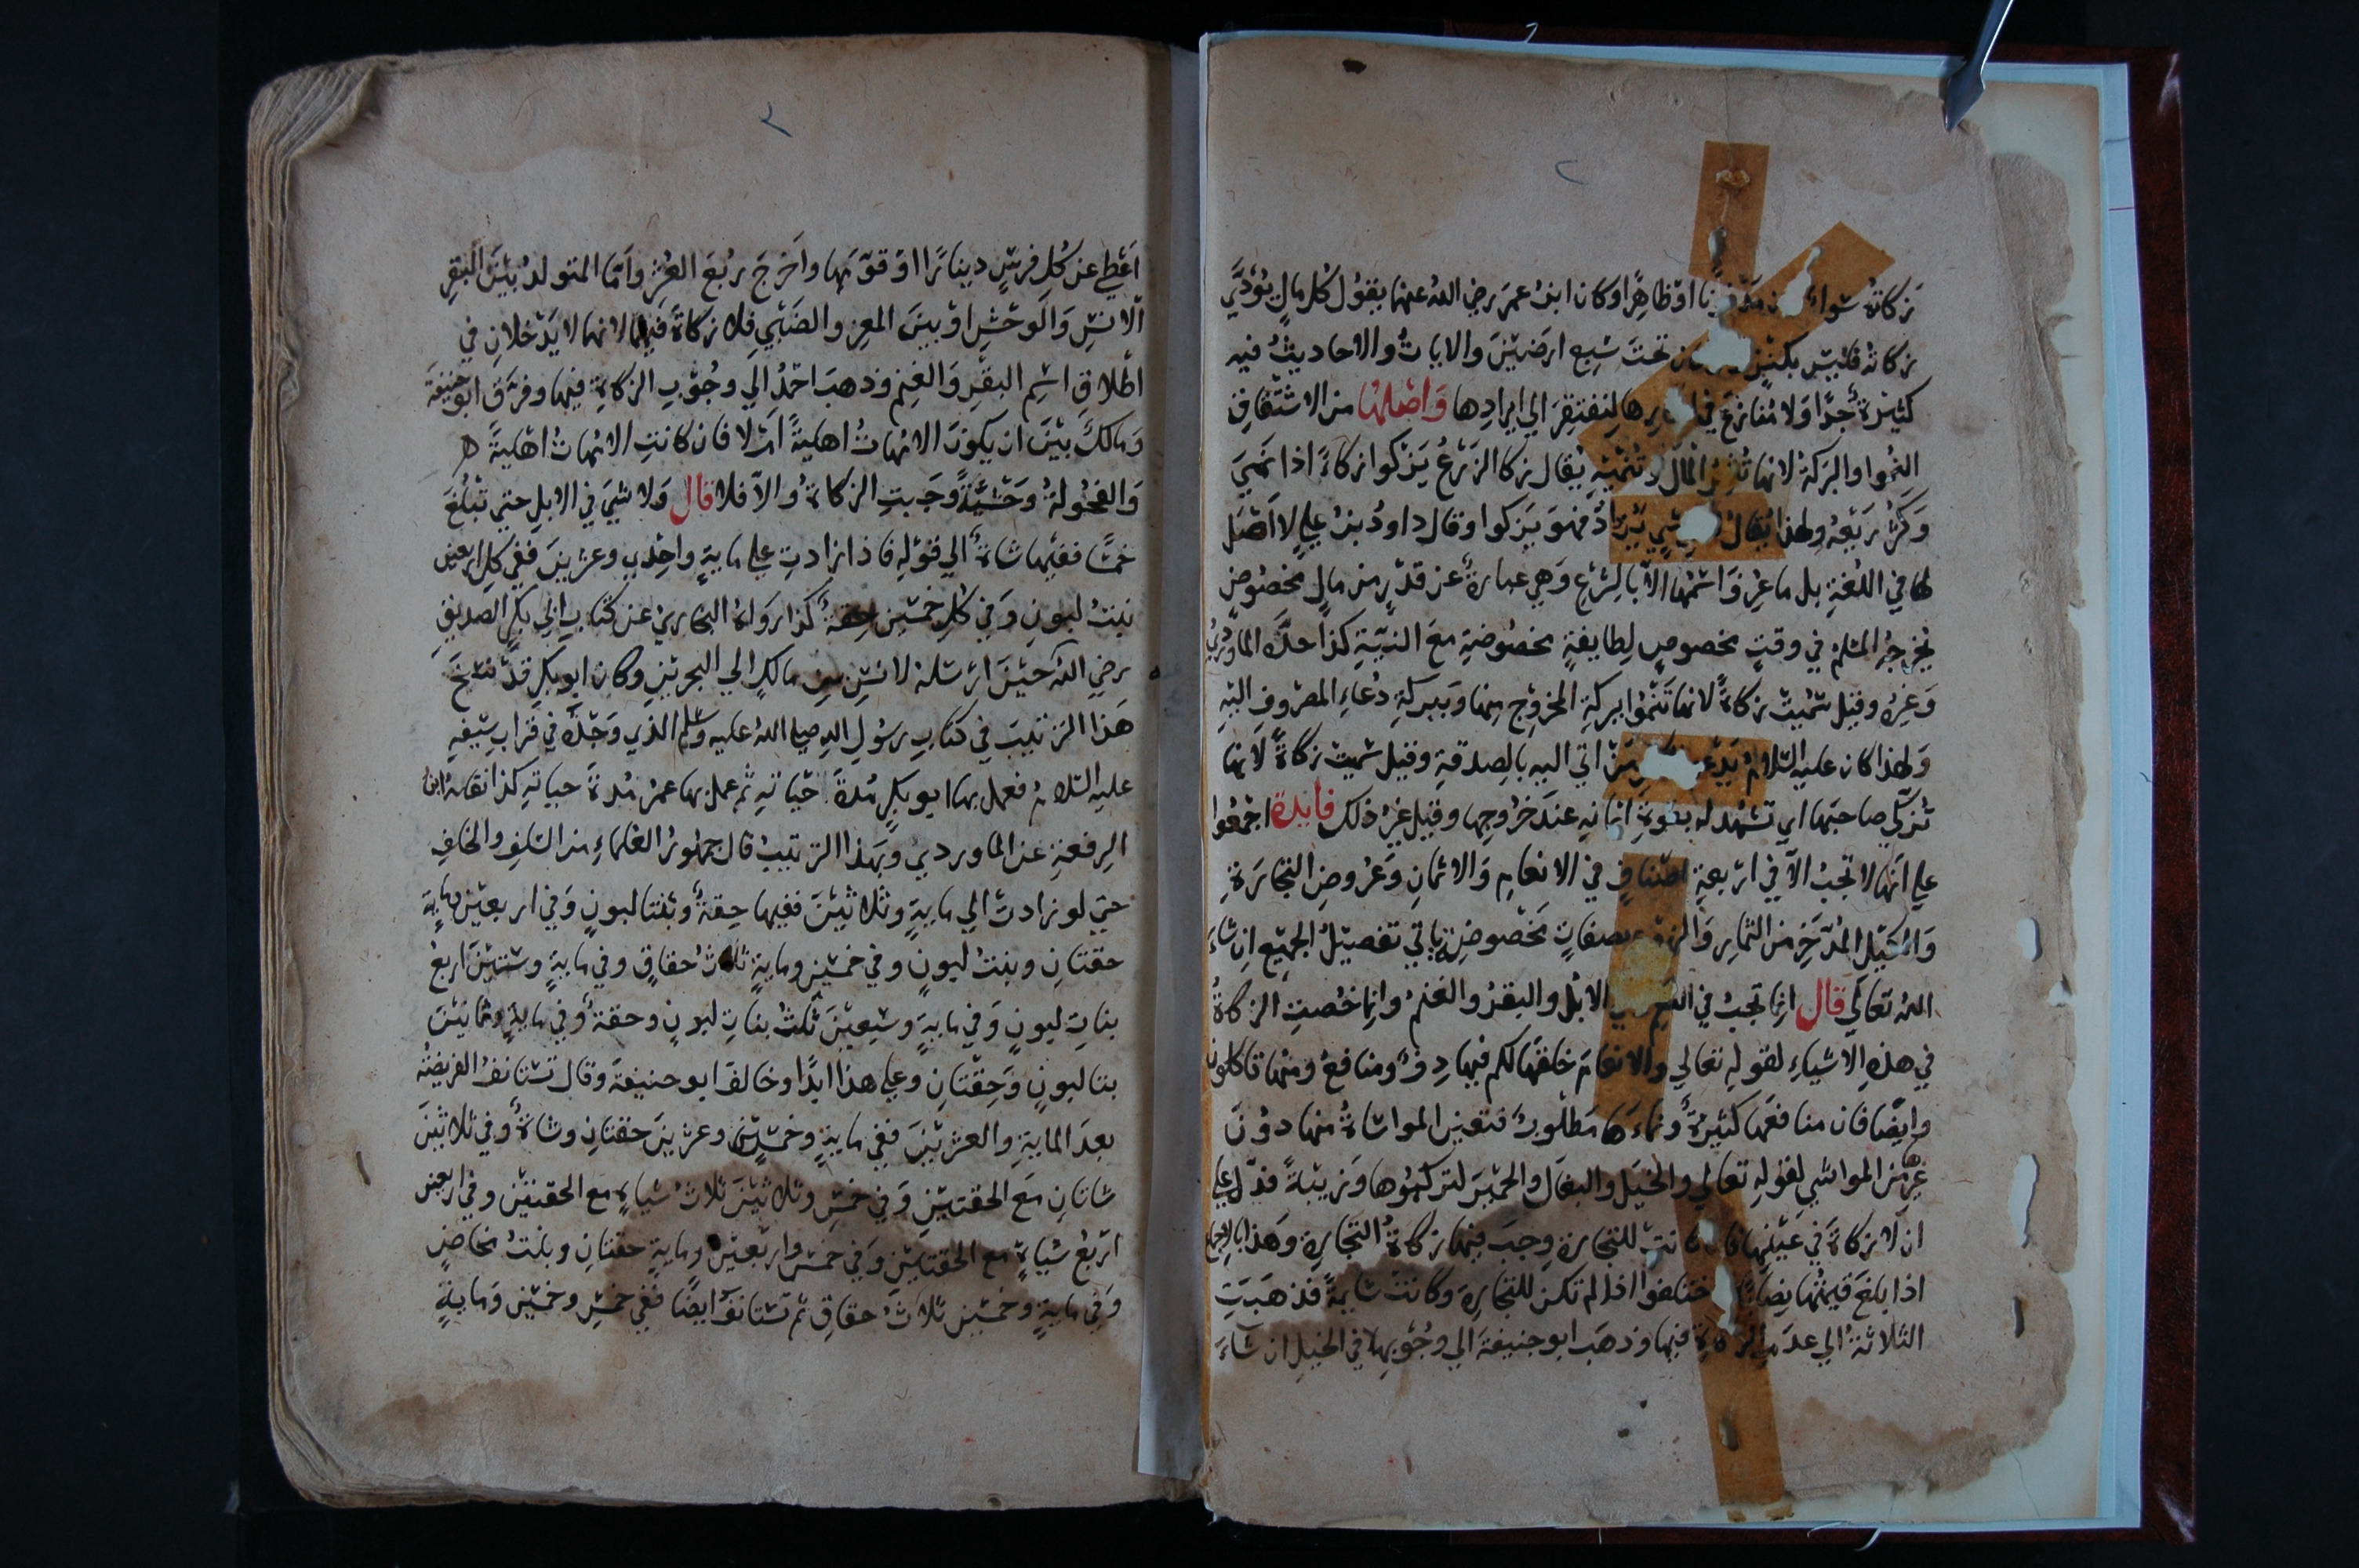 ٢
زكاته سواء مدفونا اوظاهرا وكان ابن عمر رضي الله عنهما يقول كل مال يؤدي
زكاته فليس بكنز تحت سبع ارضين والايات والاحاديث فيه
كثيرة جدا ولا منازع في لنفتقر الي ايرادها واصلها من الاشتقاق
النموا والبركة لانها المال وتنميه يقال زكا الزرع يزكوا زكاة اذا نمي
وكثر ريعه ولهذا يقال شي يزداد فهو يزكوا وقال داود بن علي لا اصل
لها في اللغة بل ما عرف اسمها الا بالشرع وهي عبارة عن قدر من مال مخصوص
يخرجه المسلم في وقت مخصوص لطايفة مخصوصة مع النية كذا حده الماوردي
وغيره وقيل سميت زكاة لانها تنموا ببركة الخروج منها وببركة دعاء المصروف اليه
ولهذا كان عليه السلام من اتي اليه بالصدقة وقيل سميت زكاة لانها
تزكي صاحبها اي تشهد له بقوة ايمانه عند خروجها وقيل غير ذلك فايدة اجمعوا
علي انها لا تجب الا في اربعة اصناف في الانعام والاثمان وعروض التجارة
والمكيل المدخر من الثمار بصفات مخصوصة ياتي تفصيل الجميع ان شاء
الله تعالي قال انما تجب في الابل والبقر والغنم وانما خصت الزكاة
في هذه الاشياء لقوله تعالي والانعام خلقها لكم فيها دفؤ ومنافع ومنها تاكلون
وايضا فان منافعها كثيرة ونماءها مطلوب فتعين المواساة منها دون
غيرها من المواشي لقوله تعالي والخيل والبغال والحمير لتركبوها وزينة فدل علي
ان لا زكاة في عينها كانت للتجارة وجب فيها زكاة التجارة وهذا بالاجماع
اذا بلغ قيمتها نصابا اختلفوا اذا لم تكن للتجارة وكانت سايمة فذهبت
الثلاثة الي عدم الزكاة فيها وذهب ابو حنيفة الي وجوبها في الخيل ان شاء
٣
اعطي عن كل فرس دينارا او قومها واخرج ربع العشر واما المتولد بين البقر
الانس والوحش او بين المعز والضبي فلا زكاة فيهما لانهما لا يدخلان في
اطلاق اسم البقر والغنم وذهب احمد الي وجوب الزكاة فيها وفرق ابو حنيفة
ومالك بين ان يكون الامهات اهلية ام لا فان كانت الامهات اهلية
والفحولة وحشية وجبت الزكاة والا فلا قال ولا شي في الابل حتي تبلغ
خمسا ففيها شاة الي قوله فاذا زادت علي ماية واحدي وعشرين ففي كل اربعين
بنت لبون وفي كل خمسين حقة كذا رواه البخاري عن كتاب ابي بكر الصديق
رضي الله حين ارسله لانس بن مالك الي البحرين وكان ابو بكر قد نسخ
هذا الترتيب في كتاب رسول الله صلي الله عليه وسلم الذي وجده في قراب سيفه
عليه السلام فعمل بها ابو بكر مدة حياته ثم عمل بها عمر مدة حياته كذا نقله ابن
الرفعة عن الماوردي وبهذا الترتيب قال جمهور العلماء من السلف والخلف
حتي لو زادت الي ماية وثلاثين ففيها حقة وبنتا لبون وفي اربعين وماية
حقتان وبنت لبون وفي خمسين وماية ثلاث حقاق وفي ماية وستين اربع
بنات لبون وفي ماية وسبعين ثلث بنات لبون وحقة وفي ماية وثمانين
بنتا لبون وحقتان وعلي هذا ابدا وخالف ابو حنيفة وقال تستانف الفريضة
بعد الماية والعشرين ففي ماية وخمس وعشرين حقتان وشاة وفي ثلاثين
شاتان مع الحقتين وفي خمس وثلاثين ثلاث شياه مع الحقتين وفي اربعين
اربع شياه مع الحقتين وفي خمس واربعين وماية حقتان وبنت مخاض
وفي ماية وخمسين ثلاث حقاق ثم تستانف ايضا ففي خمس وخمسين وماية